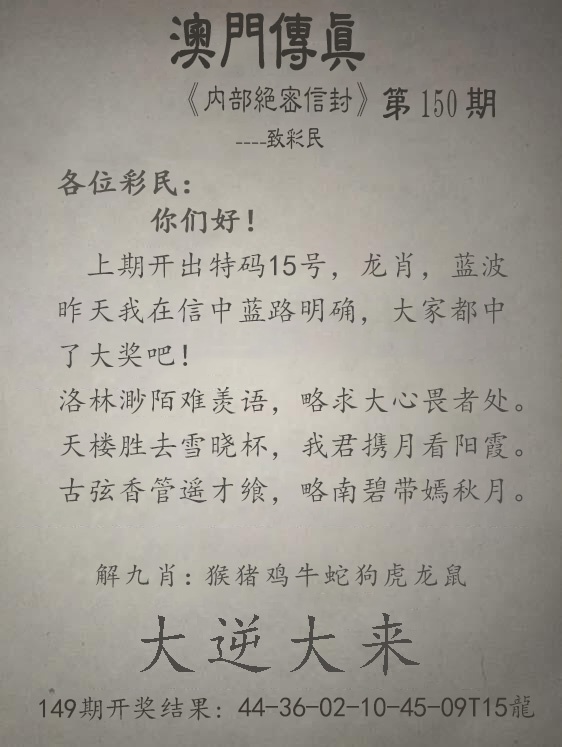 澳門傳眞
《内部絕密信封》第150期
----致彩民
各位彩民：
你们好！
上期开出特码15号，龙肖，蓝波
昨天我在信中蓝路明确，大家都中
了大奖吧！
洛林渺陌难羡语，略求大心畏者处。
天楼胜去雪晓杯，我君携月看阳霞。
古弦香管遥才飨，略南碧带嫣秋月。
解九肖：猴猪鸡牛蛇狗虎龙鼠
大逆大来
149期开奖结果：44-36-02-10-45-09T15龍